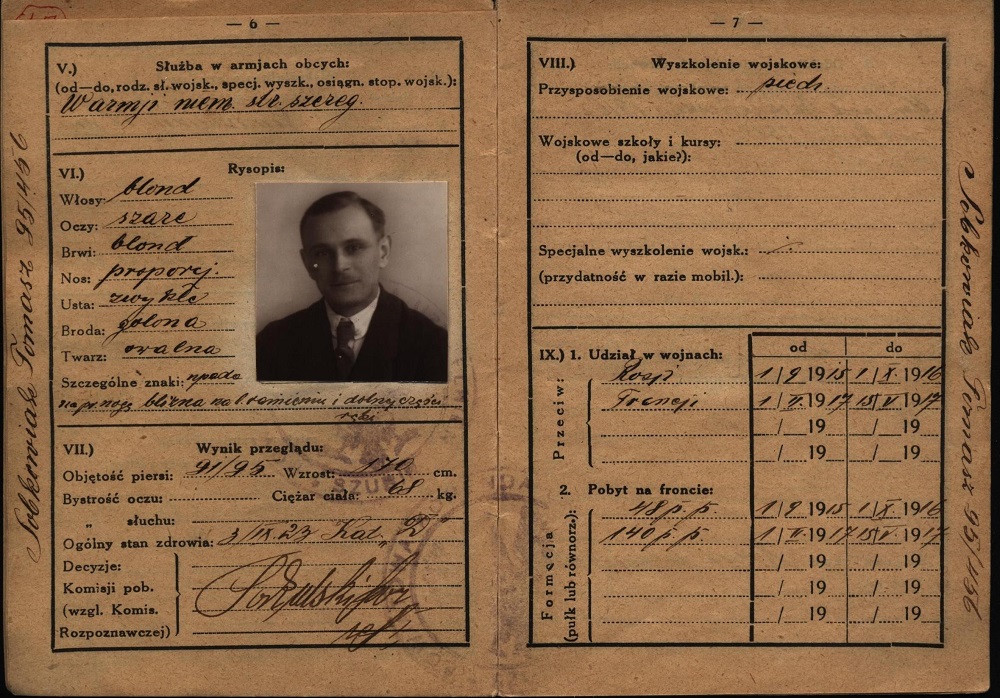 — 6 —
V.) Służba w armjach obcych:
(od—do, rodz. sł. wojsk., specj. wyszk., osiągn. stop. wojsk.):
W armji niem. str. szereg.
VI.) Rysopis:
Włosy: blond
Oczy: szare
Brwi: blond
Nos: proporcj.
Usta: zwykłe
Broda: golona
Twarz: owalna
Szczególne znaki:
na pr. nogę blizna na l. ramieniu i dolnej części
ręki
VII.) Wynik przeglądu:
Objętość piersi: 91/95 Wzrost: 170 cm.
Bystrość oczu: Ciężar ciała: 68 kg.
„ słuchu:
Ogólny stan zdrowia: 3/IX.23 Kat. „D"
Decyzje:
Komisji pob.
(wzgl. Komis.
Rozpoznawczej)
Sobkowiak Tomasz 95/456
— 7 —
VIII.) Wyszkolenie wojskowe:
Przysposobienie wojskowe: piech.
Wojskowe szkoły i kursy:
(od—do, jakie?):
Specjalne wyszkolenie wojsk.:
(przydatność w razie mobil.):
IX.) 1. Udział w wojnach: od do
Przeciw:
Rosji 1/9 1915 1/X 1916
Francji 1/II 1917 15/V 1917
/ 19 / 19
/ 19 / 19
2. Pobyt na froncie:
Formacja
(pułk lub równorz.):
48 p.p. 1/9 1915 1/X 1916
140 p.p. 1/II 1917 15/V 1917
/ 19 / 19
/ 19 / 19
/ 19 / 19
Sobkowiak Tomasz 95/456